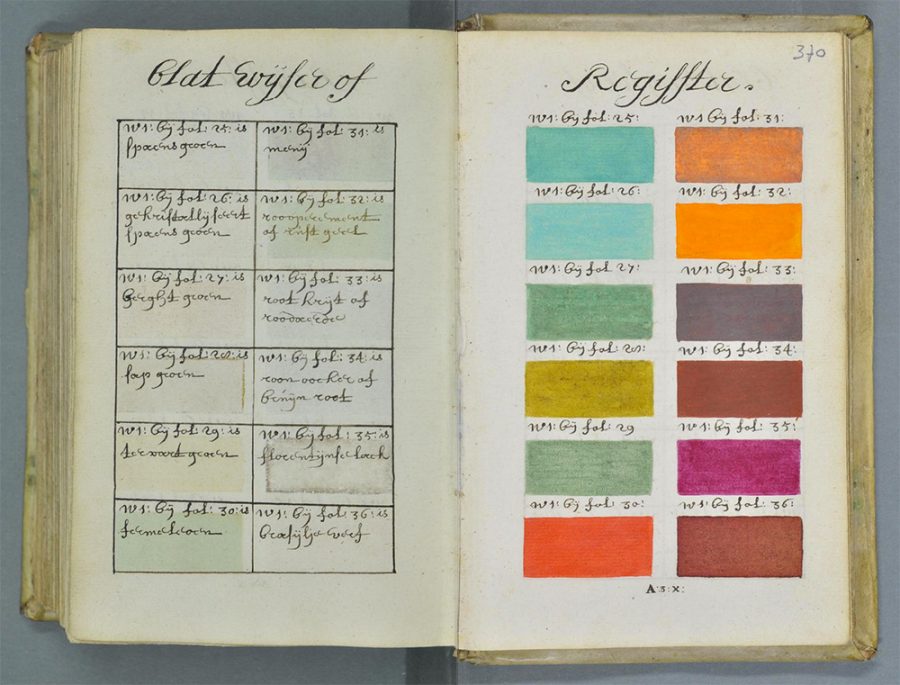 blat wijser of
w1: bij fol: 25: is
spaens groen
w1: bij fol: 31: is
menij
w1: bij fol: 26: is
gekristallijseert
spaens groen
w1: bij fol: 32: is
rooopriement
of rust geel
w1: bij fol: 27: is
berght groen
w1: bij fol: 33: is
root krijt of
roodaerde
w1: bij fol: 28: is
sap groen
w1: bij fol: 34: is
roon oocker of
bruijn root
w1: bij fol: 29: is
tervart groen
w1: bij fol: 35: is
florentijnse lack
w1: bij fol: 30: is
fermeleoen
w1: bij fol: 36: is
brasijlje verf
370
Regisster.
w1: bij fol: 25:
w1 bij fol: 31:
w1: bij fol: 26:
w1: bij fol: 32:
w1: bij fol: 27:
w1: bij fol: 33:
w1: bij fol: 28:
w1: bij fol: 34:
w1: bij fol: 29
w1: bij fol: 35:
w1: bij fol: 30:
w1: bij fol: 36:
A:3:X: